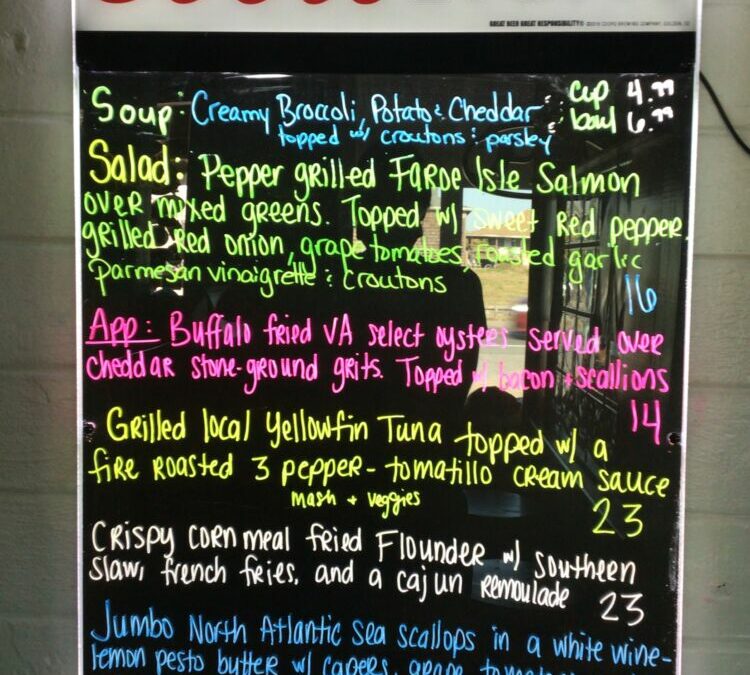 GREAT BEER GREAT RESPONSIBILITY®
Soup: Creamy Broccoli, Potato & Cheddar cup 4.99
topped w/ croutons & parsley bowl 6.99
Salad: Pepper grilled Faroe Isle Salmon
over mixed greens. Topped w/ sweet Red pepper,
grilled Red onion, grape tomatoes, roasted garlic
parmesan vinaigrette & croutons
16
App: Buffalo fried VA select oysters served over
cheddar stone-ground grits. Topped w/ bacon + scallions
14
Grilled local Yellowfin Tuna topped w/ a
fire roasted 3 pepper-tomatillo cream sauce
mash + veggies
23
Crispy corn meal fried Flounder w/ southern
slaw, french fries, and a cajun remoulade
23
Jumbo North Atlantic Sea scallops in a white wine-
lemon pesto butter w/ capers, grape